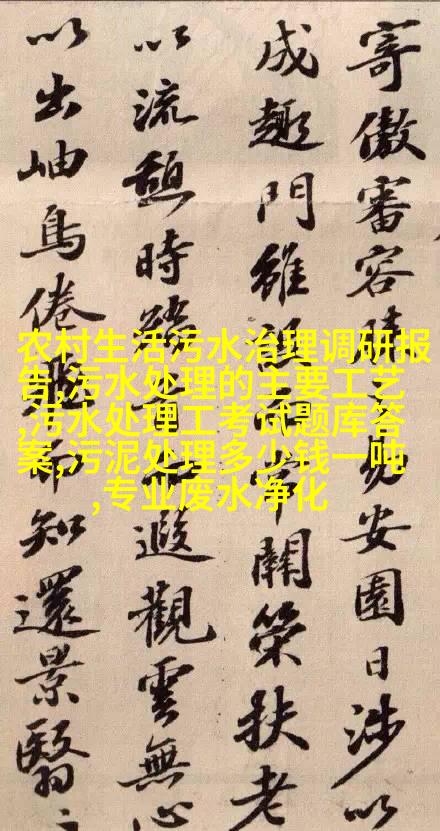 寄傲審容膝之易安園日涉以
成趣門雖設而常關策扶老
以流憩時遐觀雲無心
以出岫鳥倦飛而知還景翳〻
农村生活污水治理调研报
告,污水处理的主要工艺
,污水处理工考试题库答
案,污泥处理多少钱一吨
,专业废水净化